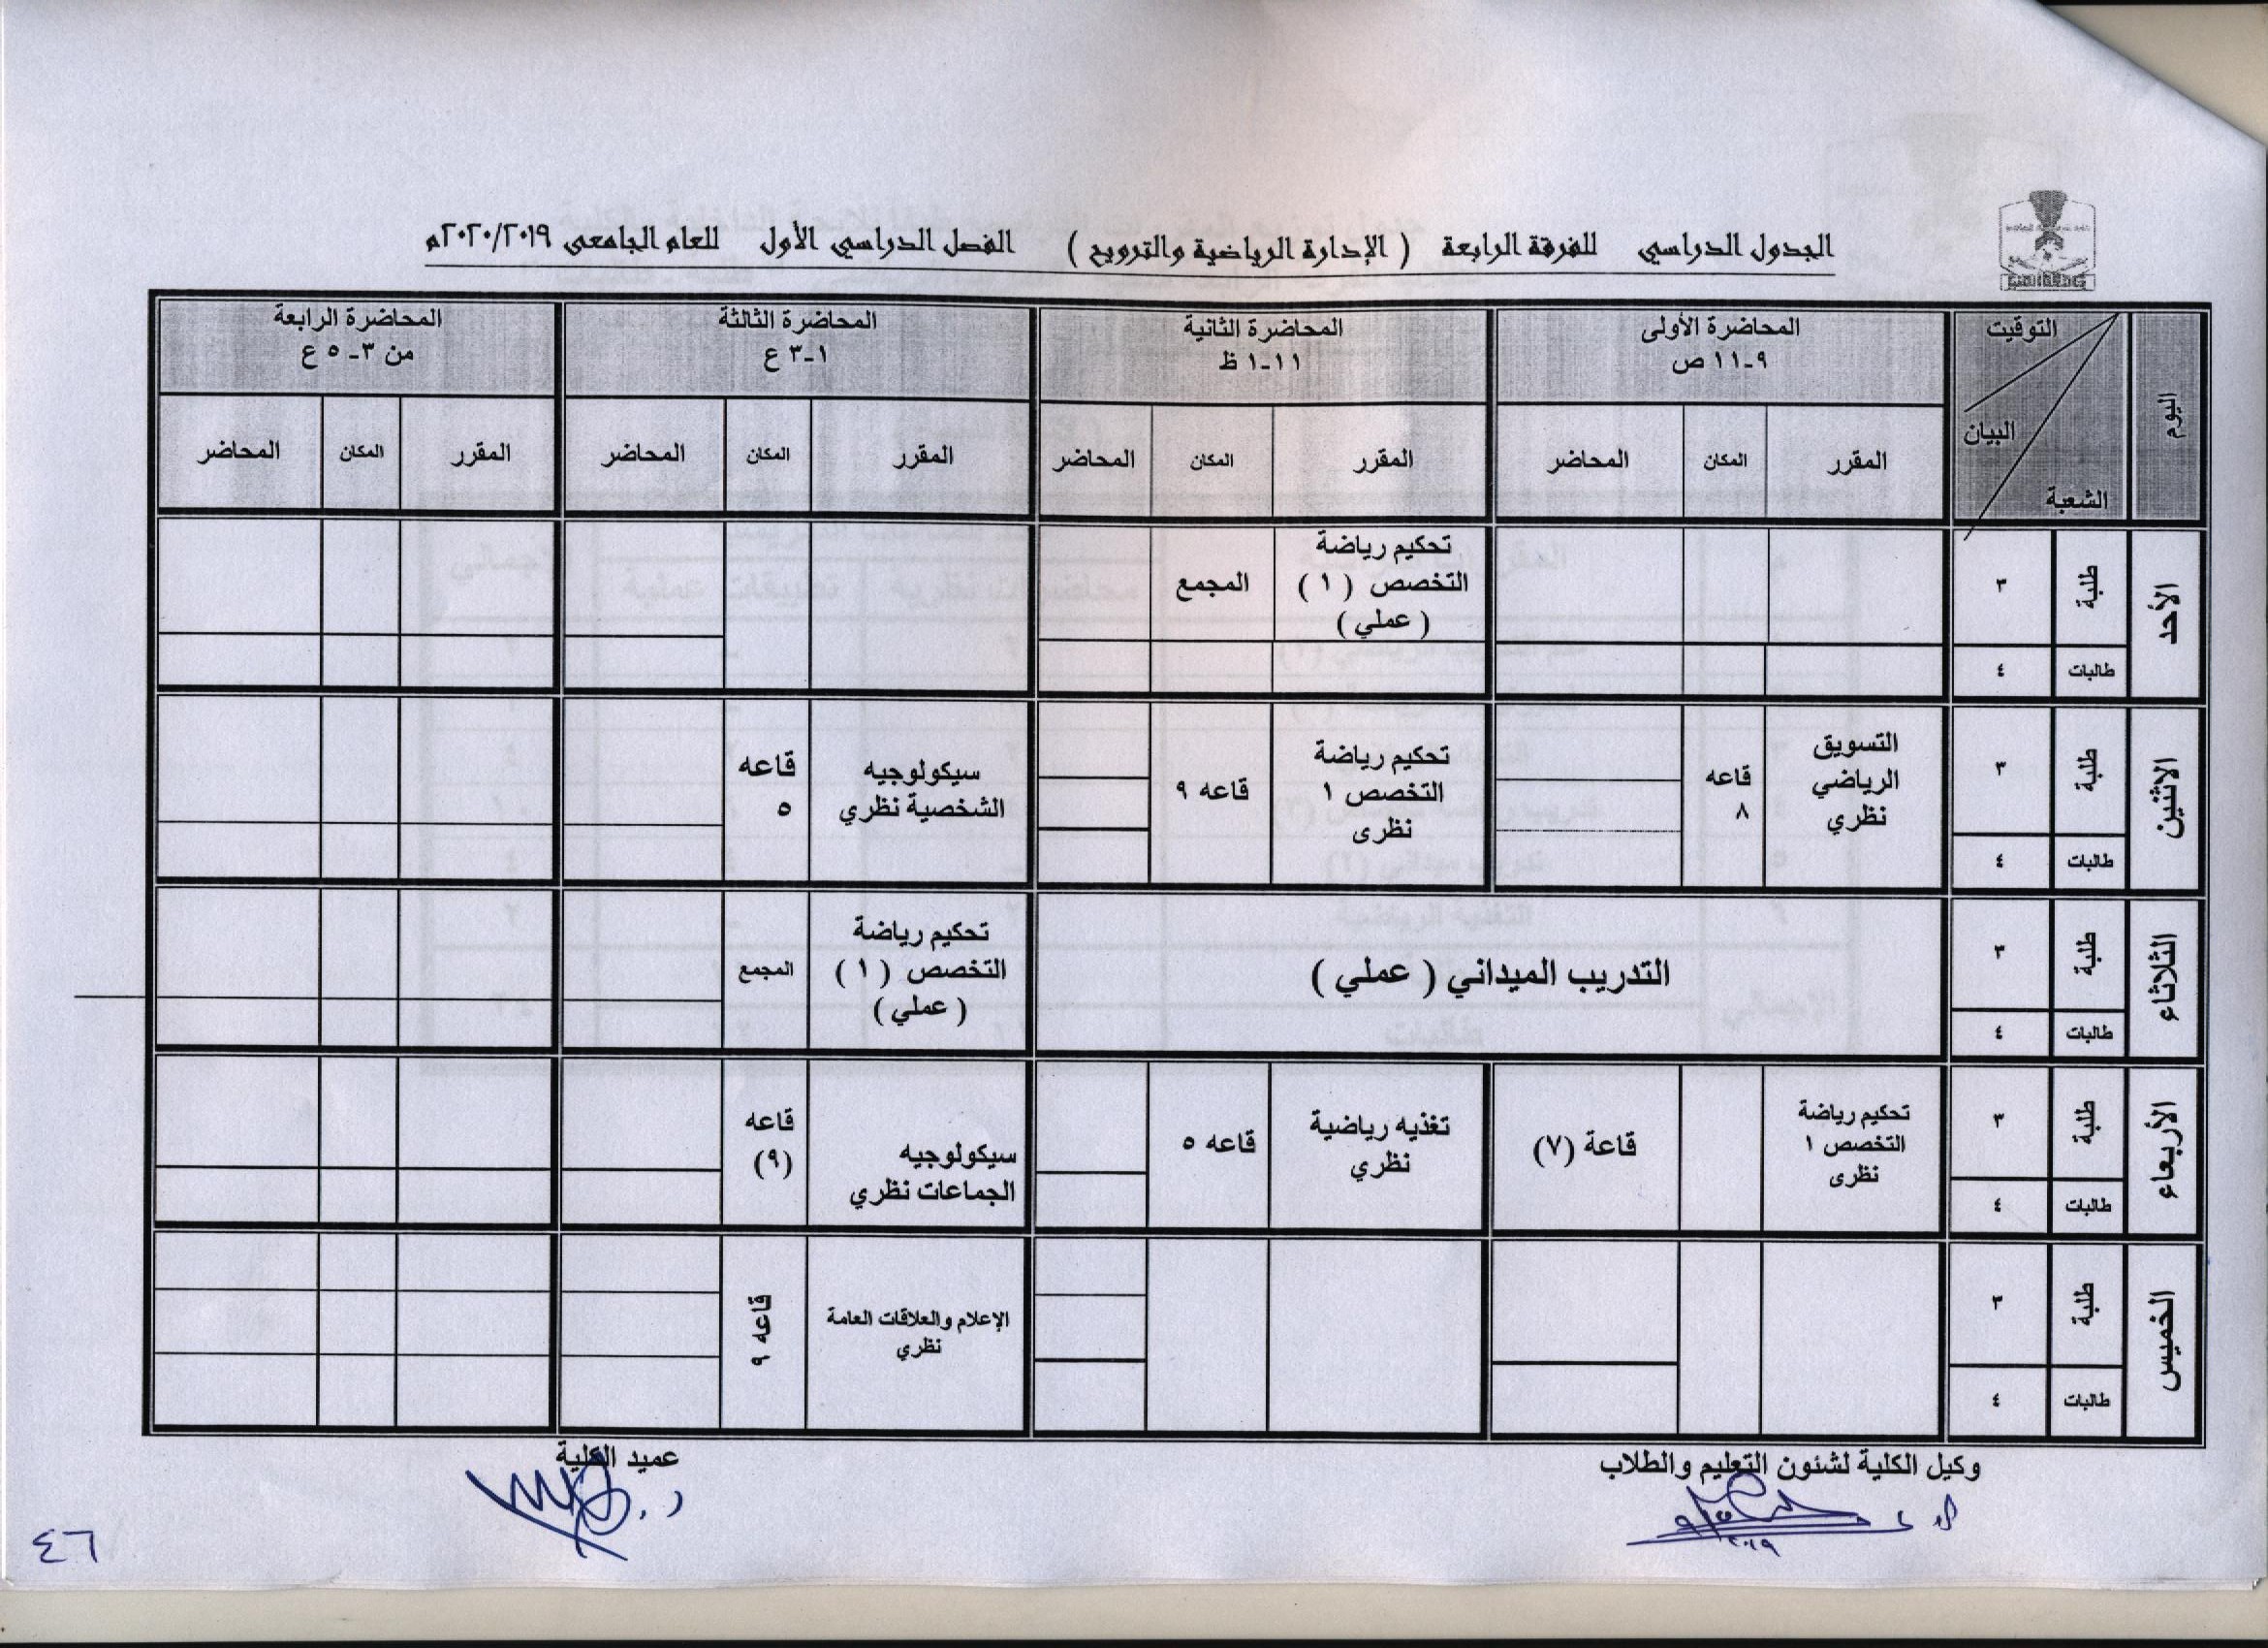 الجدول الدراسي للفرقة الرابعة ( الإدارة الرياضية والترويح ) الفصل الدراسي الأول للعام الجامعى ٢٠٢٠/٢٠١٩م
اليوم
التوقيت
البيان
الشعبة
المحاضرة الأولى
٩-١١ ص
المحاضرة الثانية
١١-١ ظ
المحاضرة الثالثة
١-٣ ع
المحاضرة الرابعة
من ٣-٥ ع
المقرر المكان المحاضر المقرر المكان المحاضر المقرر المكان المحاضر المقرر المكان المحاضر
الأحد
طلبة ٣
تحكيم رياضة
التخصص ( ١ )
( عملي )
المجمع
طالبات ٤
الاثنين
طلبة ٣
التسويق
الرياضي
نظري
قاعه
٨
تحكيم رياضة
التخصص ١
نظرى
قاعه ٩
سيكولوجيه
الشخصية نظري
قاعه
٥
طالبات ٤
الثلاثاء
طلبة ٣
التدريب الميداني ( عملي )
تحكيم رياضة
التخصص ( ١ )
( عملي )
المجمع
طالبات ٤
الأربعاء
طلبة ٣
تحكيم رياضة
التخصص ١
نظرى
قاعة (٧)
تغذيه رياضية
نظري
قاعه ٥
سيكولوجيه
الجماعات نظري
قاعه
(٩)
طالبات ٤
الخميس
طلبة ٣
الإعلام والعلاقات العامة
نظري
قاعه ٩
طالبات ٤
وكيل الكلية لشئون التعليم والطلاب
عميد الكلية
٤٦